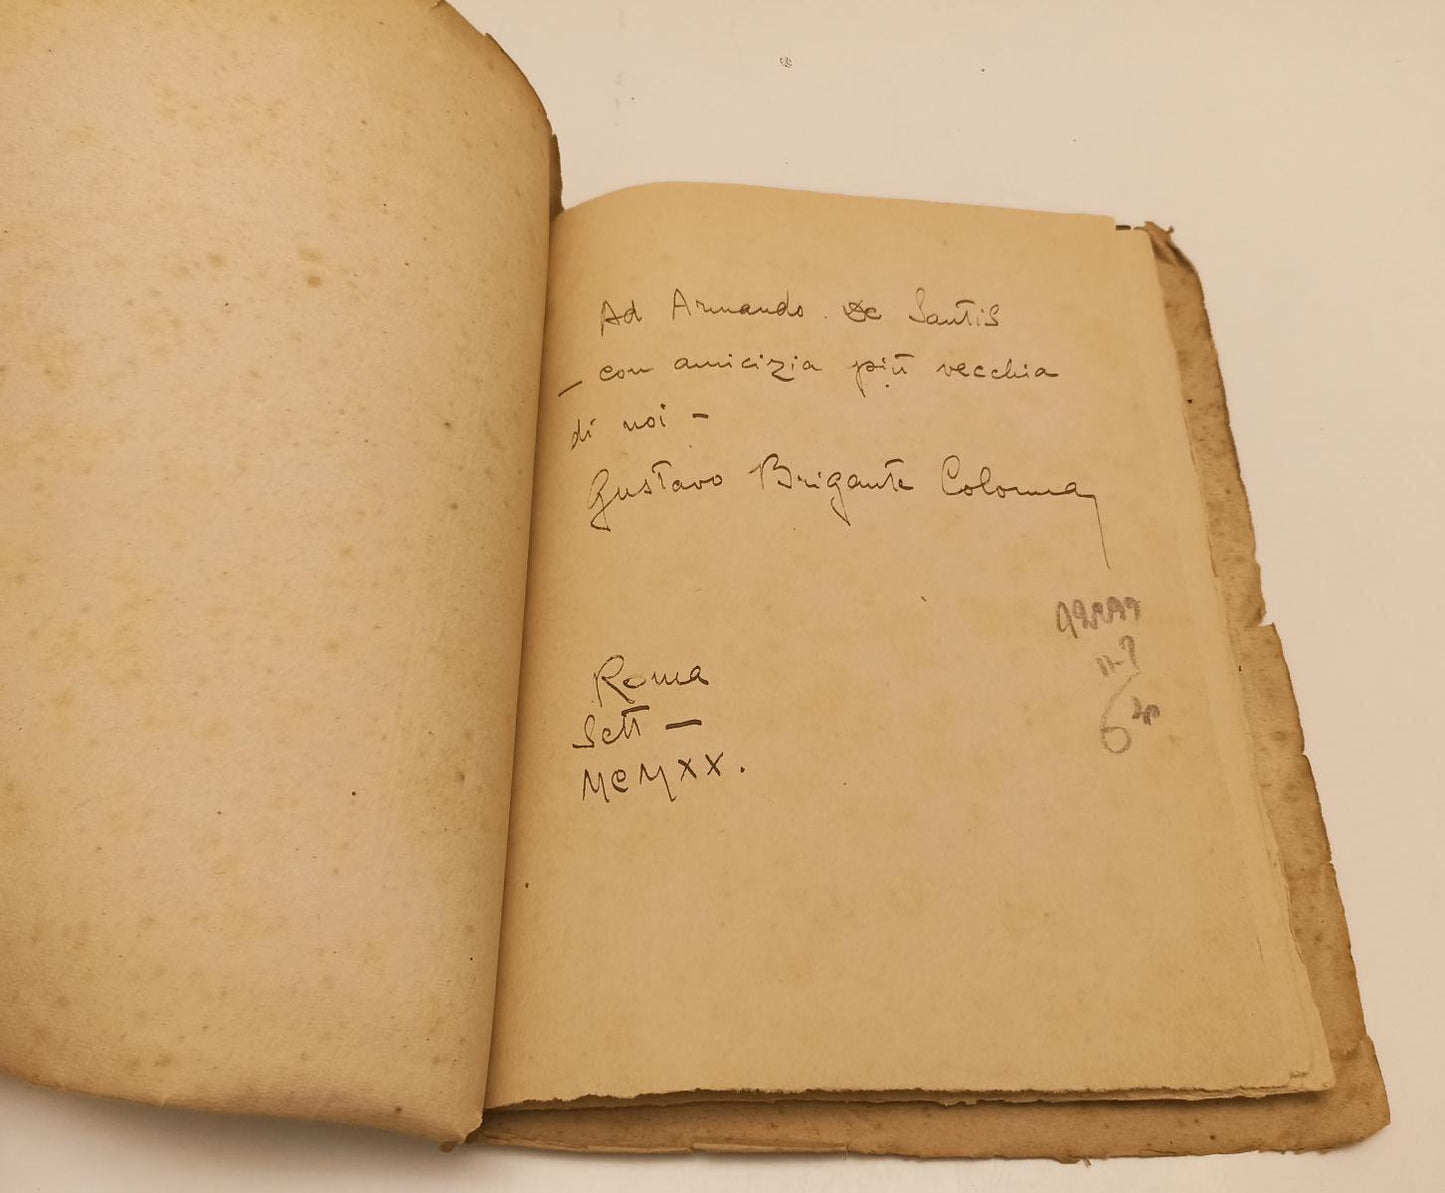 Ad Armando De Santis
— con amicizia più vecchia
di noi —
Gustavo Brigante Colonna
Roma
Sett —
MCMXX.